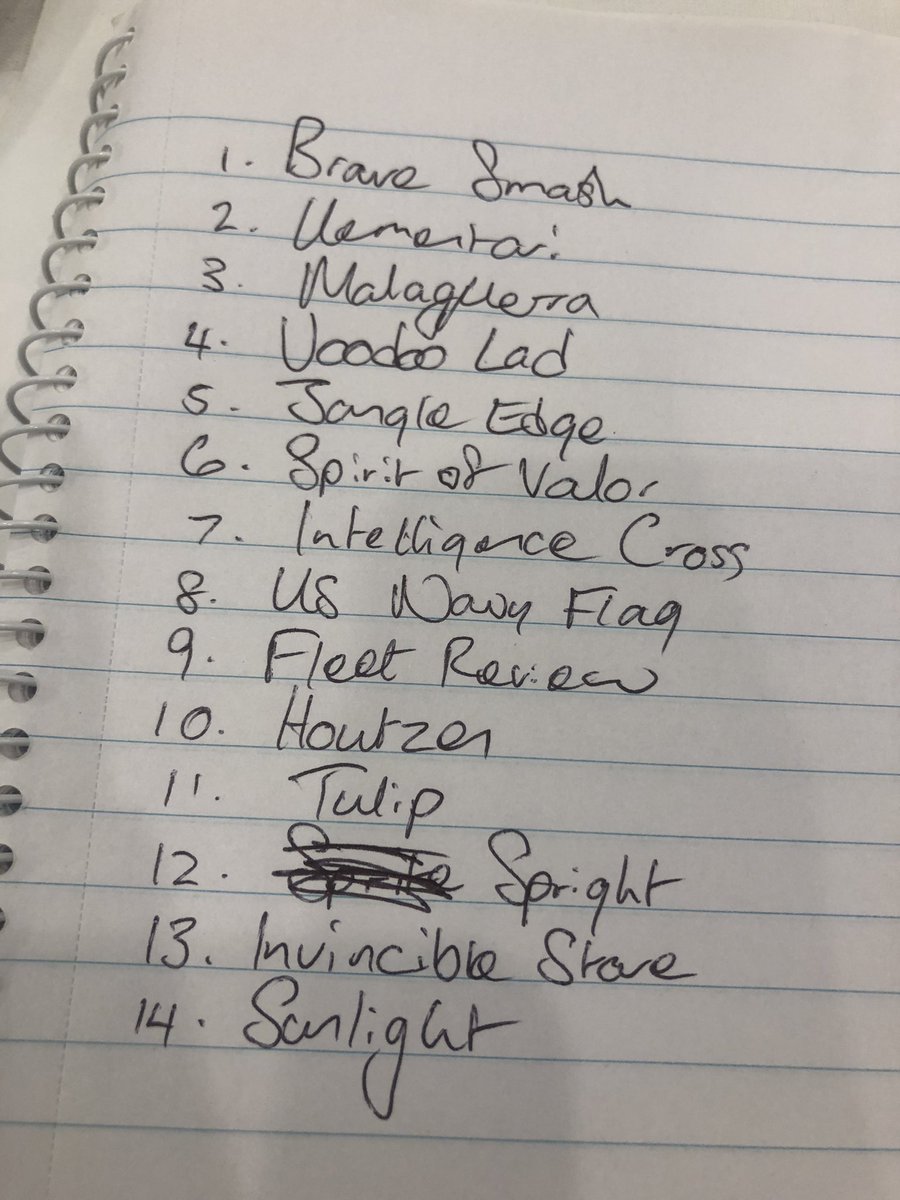 1. Brave Smash
2. Vementari
3. Malaguerra
4. Voodoo Lad
5. Jungle Edge
6. Spirit of Valor
7. Intelligence Cross
8. US Navy Flag
9. Fleet Review
10. Houtzen
11. Tulip
12. Spright
13. Invincible Stare
14. Sunlight